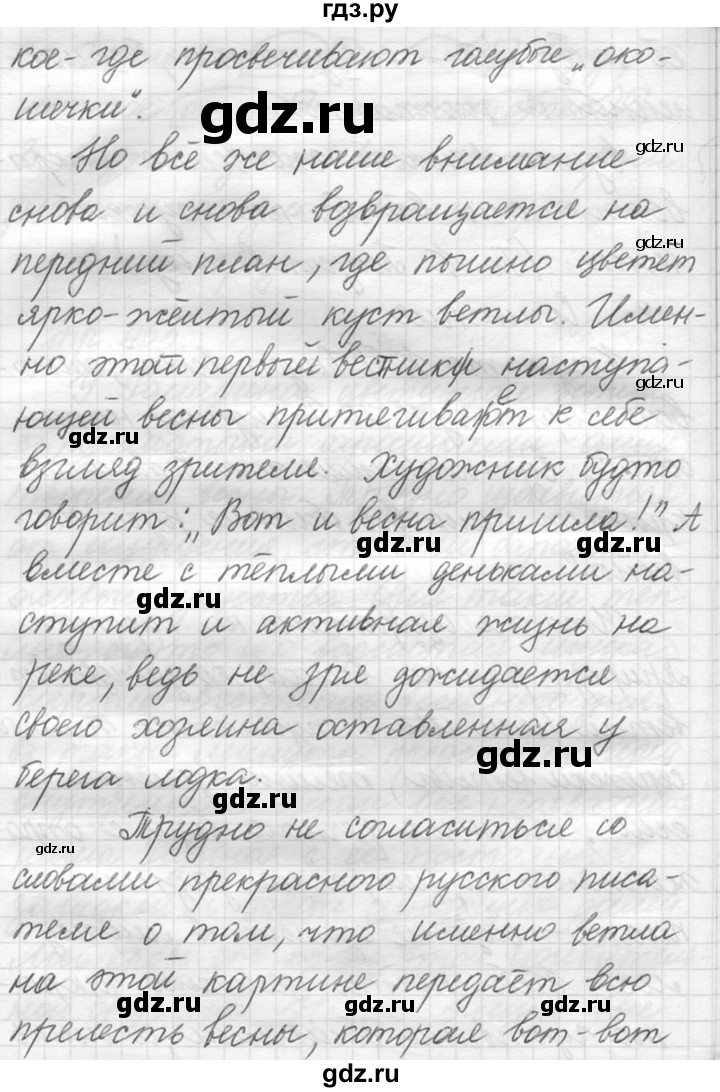 гдз.ру
кое-где просвечивают голубые „око-
шечки“.
gdz.ru
gdz.ru
Но всё же наше внимание
gdz.ru
снова и снова возвращается на
gdz.ru
передний план, где пышно цветет
ярко-жёлтый куст ветлы. Имен-
gdz.ru
но этот первый вестник наступа-
gdz.ru
ющей весны притягивает к себе
gdz.ru
взгляд зрителя. Художник будто
говорит: „Вот и весна пришла!” А
gdz.ru gdz.ru
вместе с тёплыми деньками на-
gdz.ru
ступит и активная жизнь на
реке, ведь не зря дожидается
своего хозяина оставленная у
gdz.ru
берега лодка.
gdz.ru
Трудно не согласиться со
gdz.ru
словами прекрасного русского писа-
теля о том, что именно ветла
на этой картине передаёт всю
gdz.ru gdz.ru gdz.ru
прелесть весны, которая вот-вот
gdz.ru